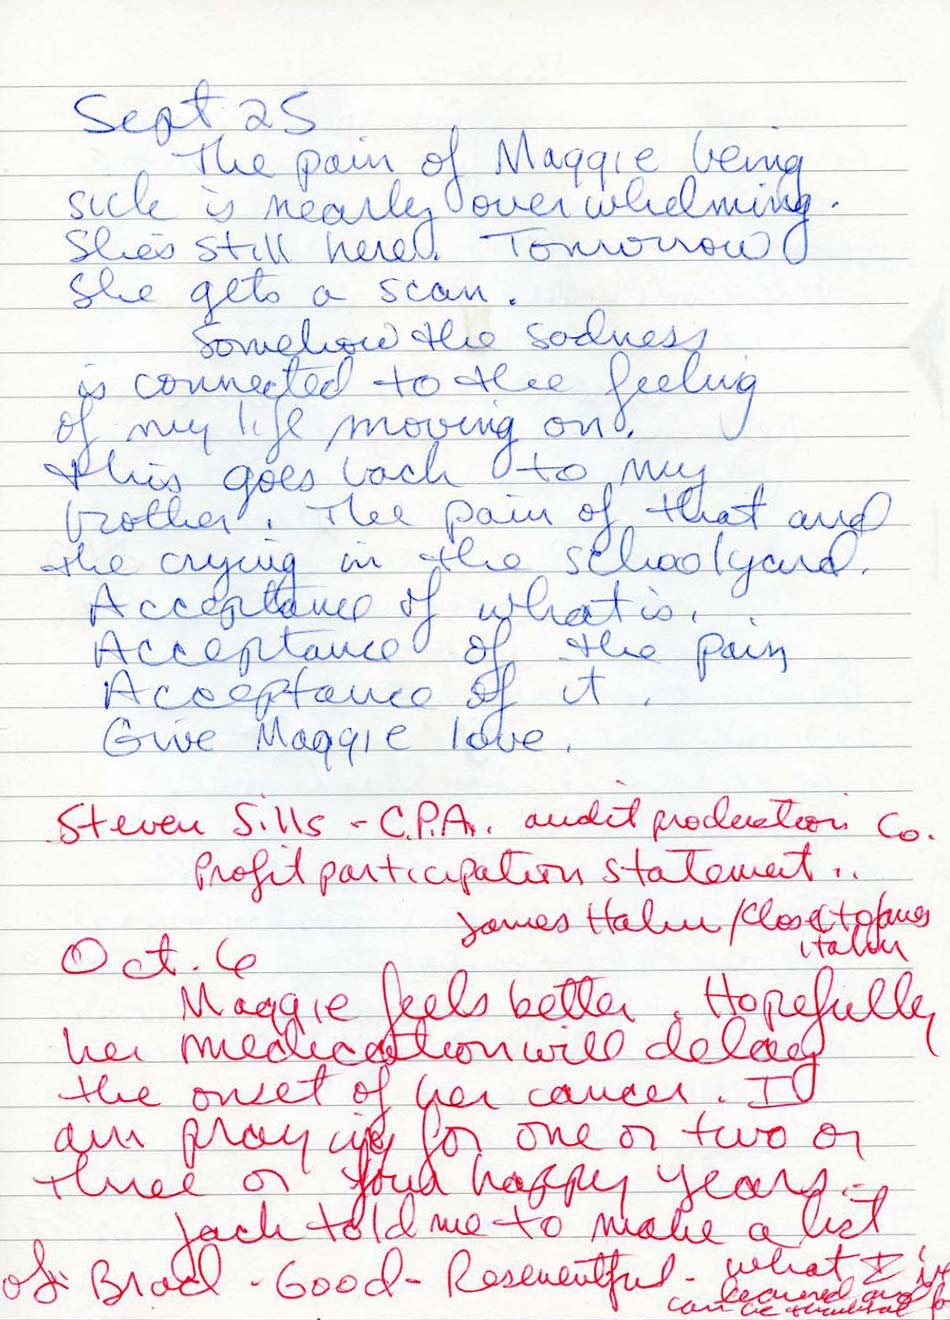 Sept 25
The pain of Maggie being
sick is nearly overwhelming.
She's still here. Tomorrow
She gets a scan.
Somehow the sadness
is connected to the feeling
of my life moving on.
this goes back to my
brother. The pain of that and
the crying in the schoolyard.
Acceptance of what is.
Acceptance of the pain
Acceptance of it.
Give Maggie love.
Steven Sills - C.P.A. audit production Co.
Profit participation statement..
James Hahn / Close to James
Hahn
Oct. 6
Maggie feels better. Hopefully
her medication will delay
the onset of her cancer. I
am praying for one or two or
three or four happy years.
Jack told me to make a list
of: Brad - Good - Resentful - what I've
learned and
can be thankful for